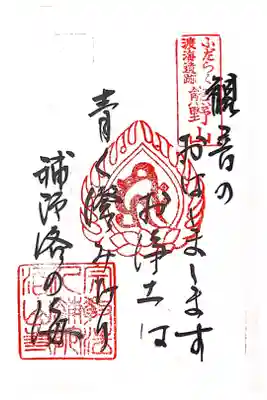 ふだらく
渡海遺跡
熊野山
観音の
おはします
お浄土は
青く澄みたり
補陀落の海